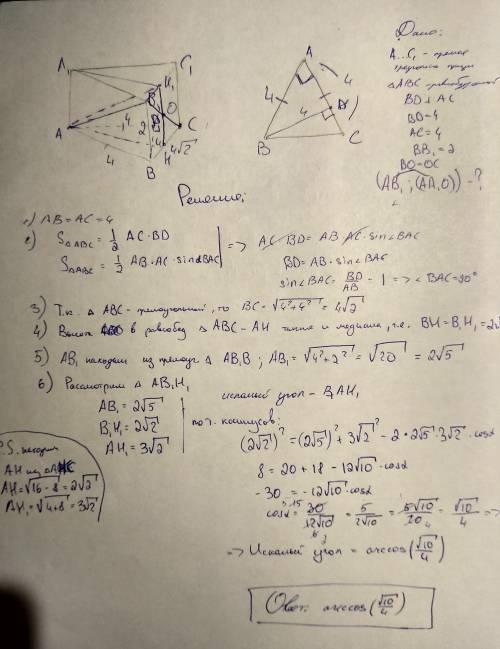 Дано:
A...C₁ - прямая
треугольн призм
△ABC - равнобедренный
BD ⊥ AC
BD = 4
AC = 4
BB₁ = 2
BO = OC
(AB₁; (AA₁O)) - ?
A₁
C₁
H₁
B₁
O
A
C
4
2
4
4√2
H
B
A
4
4
4
D
B
C
Решение:
1) AB = AC = 4
2) S△ABC = 1/2 AC · BD
S△ABC = 1/2 AB · AC · sin∠BAC
=> AC · BD = AB · AC · sin∠BAC
BD = AB · sin∠BAC
sin∠BAC = BD/AB = 1 => ∠BAC = 90°
3) Т.к. △ABC - прямоугольный, то BC = √(4² + 4²) = 4√2
4) Высота в равнобед △ABC - AH также и медиана, т.е. BH = B₁H₁ = 2√
5) AB₁ находим из прямоуг △AB₁B; AB₁ = √(4² + 2²) = √20 = 2√5
6) Рассмотрим △AB₁H₁ искомый угол - B₁AH₁
AB₁ = 2√5
B₁H₁ = 2√2
AH₁ = 3√2
по т. косинусов:
(2√2)² = (2√5)² + 3√2² - 2 · 2√5 · 3√2 · cosα
8 = 20 + 18 - 12√10 · cosα
-30 = -12√10 · cosα
cosα = 30/12√10 = 5/2√10 = 5√10/20 = √10/4 =>
=> Искомый угол = arccos(√10/4)
P.S. находим
AH из △AHC
AH = √(16 - 8) = 2√2
AH₁ = √(4+8) = 3√2
Ответ: arccos(√10/4)